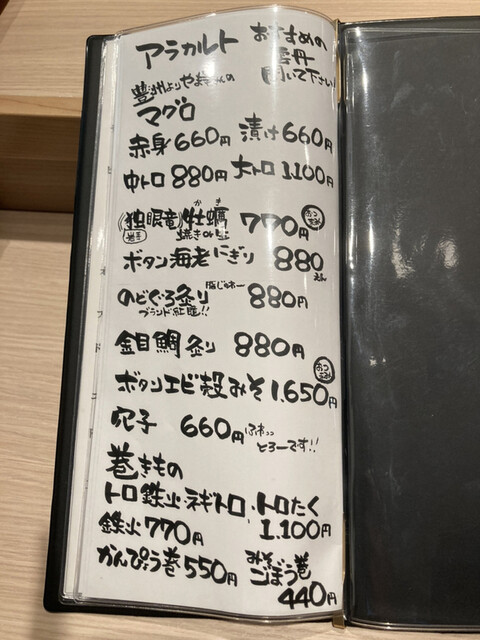 アラカルト
おすすめの
雲丹
聞いて下さい!
豊洲よりやま
の
マグロ
赤身 660円 漬け 660円
中トロ 880円 大トロ 1,100円
(独眼竜)牡蠣 770円 おつまみ
かき
岩手 焼きor
ボタン海老にぎり 880えん
のどぐろ炙り 880円
脂じゅわー
ブランド紅瞳!!
金目鯛炙り 880円
おつまみ
ボタンエビ殻みそ 1,650円
穴子 660円 ふわっっ
とろーです!!
巻きもの
トロ鉄火・ネギトロ・トロたく
鉄火 770円 1,100円
かんぴょう巻 550円 みそごぼう巻
440円